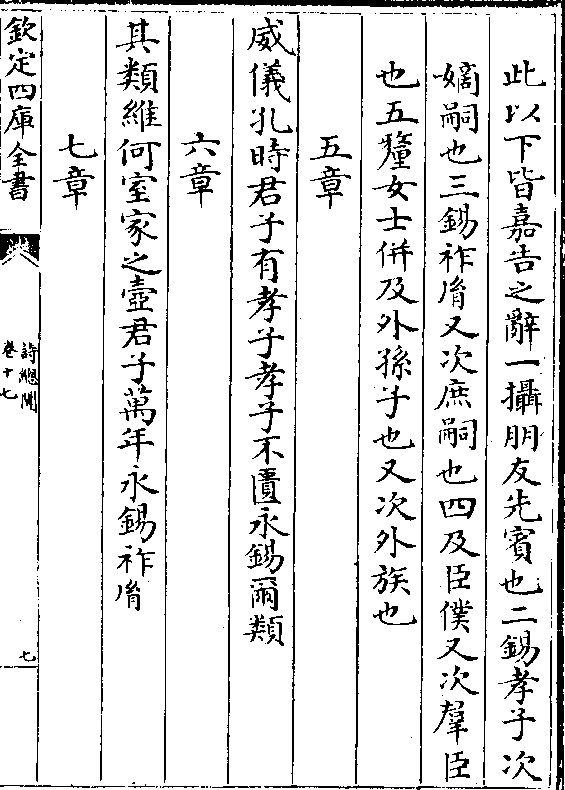 此以下皆嘉告之辭一攝朋友先賓也二錫孝子次
嫡嗣也三錫祚胤又次庶嗣也四及臣僕又次羣臣
也五釐女士併及外孫子也又次外族也
五章
威儀孔時君子有孝子孝子不匱永錫爾類
六章
其類維何室家之壼君子萬年永錫祚胤
七章
欽定四庫全書
詩總聞
卷十七
七